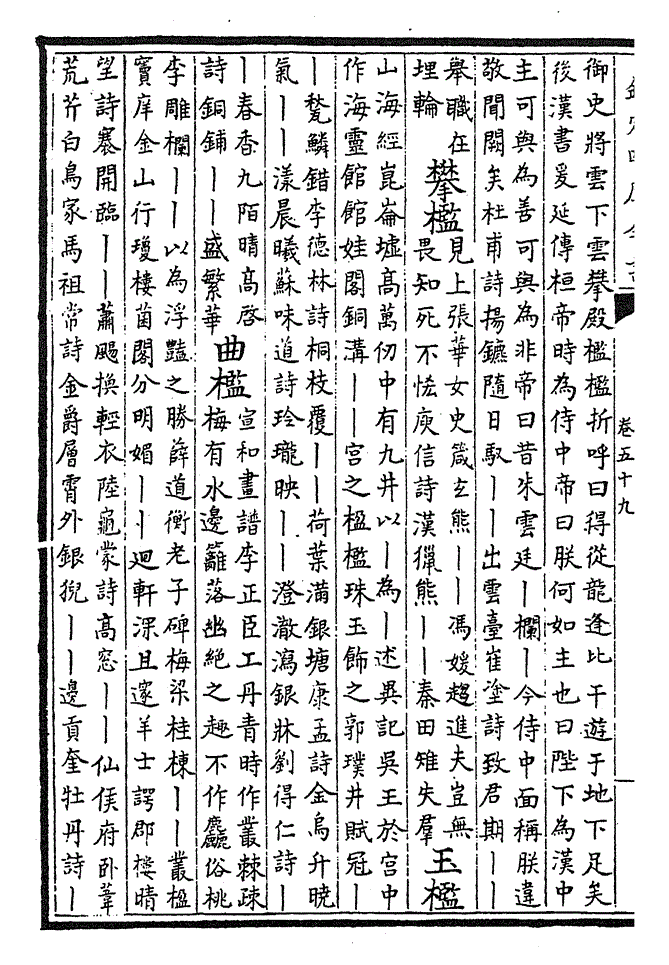 卷五十九
御史將雲下雲攀殿檻檻折呼曰得從龍逢比干遊于地下足矣
後漢書爰延傳桓帝時為侍中帝曰朕何如主也曰陛下為漢中
主可與為善可與為非帝曰昔朱雲廷丨欄丨今侍中面稱朕違
敬聞闕矣杜甫詩揚鑣隨日馭丨丨出雲臺崔塗詩致君期丨丨
舉職在
埋輪
攀檻
見上張華女史箴玄熊丨丨馮媛趨進夫豈無
畏知死不恡庾信詩漢獵熊丨丨秦田雉失羣
玉檻
山海經崑崙墟高萬仞中有九井以丨為丨述異記吳王於宮中
作海靈館館娃閣銅溝丨丨宮之楹檻珠玉飾之郭璞井賦冠丨
丨甃鱗錯李德林詩桐枝覆丨丨荷葉滿銀塘康孟詩金烏升曉
氣丨丨漾晨曦蘇味道詩玲瓏映丨丨澄澈瀉銀牀劉得仁詩丨
丨春香九陌晴高啓
詩銅鋪丨丨盛繁華
曲檻
宣和畫譜李正臣工丹青時作叢棘疎
梅有水邊籬落幽絕之趣不作麤俗桃
李雕欄丨丨以為浮豔之勝薛道衡老子碑梅梁桂棟丨丨叢楹
竇庠金山行瓊樓菌閣分明媚丨丨迴軒深且邃羊士諤郡樓晴
望詩褰開臨丨丨蕭颸換輕衣陸龜蒙詩高窓丨丨仙侯府臥葦
荒芹白鳥家馬祖常詩金爵層霄外銀猊丨丨邊貢奎牡丹詩丨